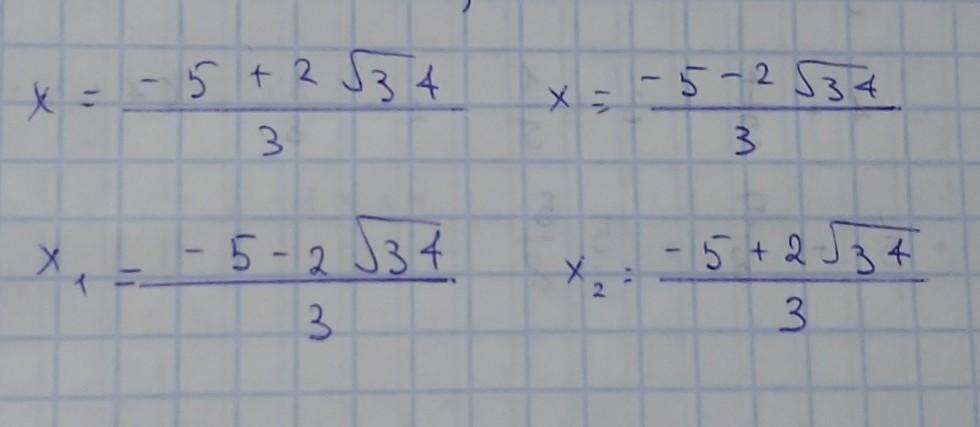 x = (-5 + 2√34)/3    x = (-5 - 2√34)/3
x₁ = (-5 - 2√34)/3    x₂ = (-5 + 2√34)/3